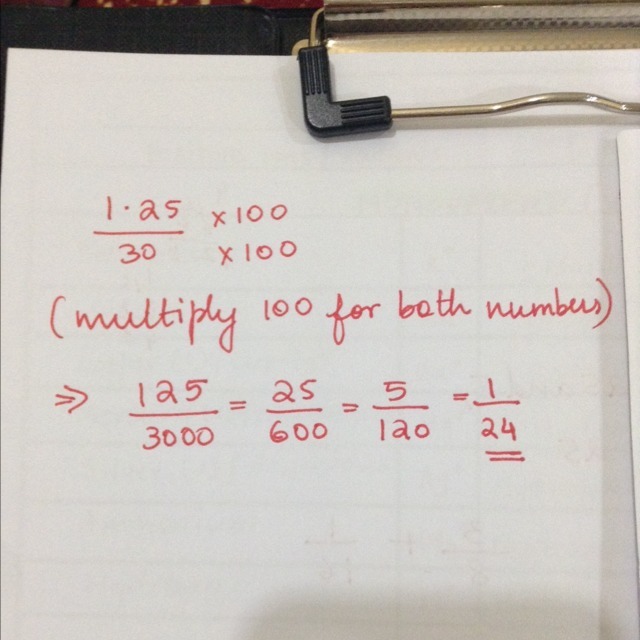 1·25 ×100
30 ×100
(multiply 100 for both numbers)
⇒ 125 = 25 = 5 = 1
3000 600 120 24